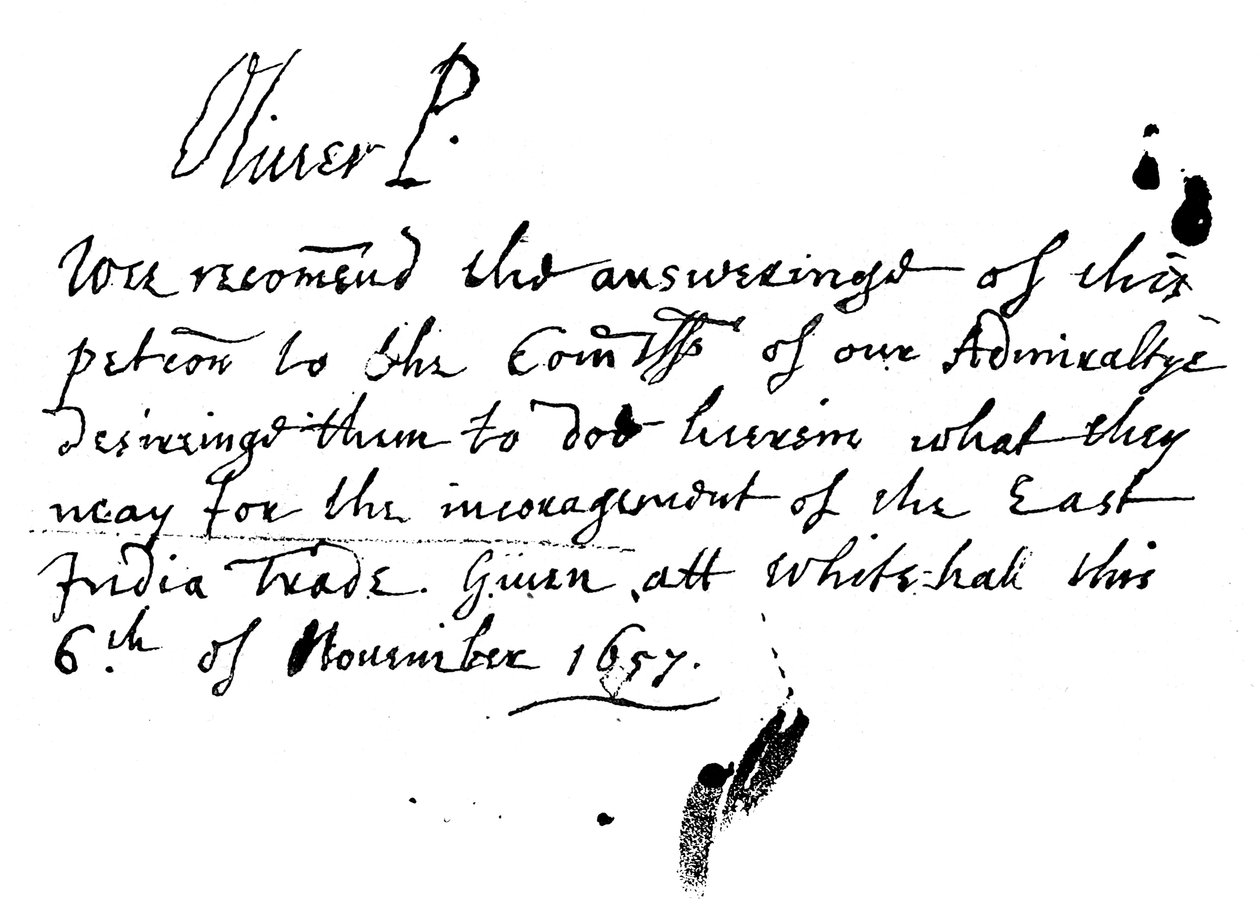 Oliuer P.
Wee recom̄end the answeringe of this
petic̄on to the Com̄rs of our Admiraltye
desireinge them to doe heerein what they
may for the incoragement of the East
India Trade. Giuen att White-hall this
6.th of Nouember 1657.